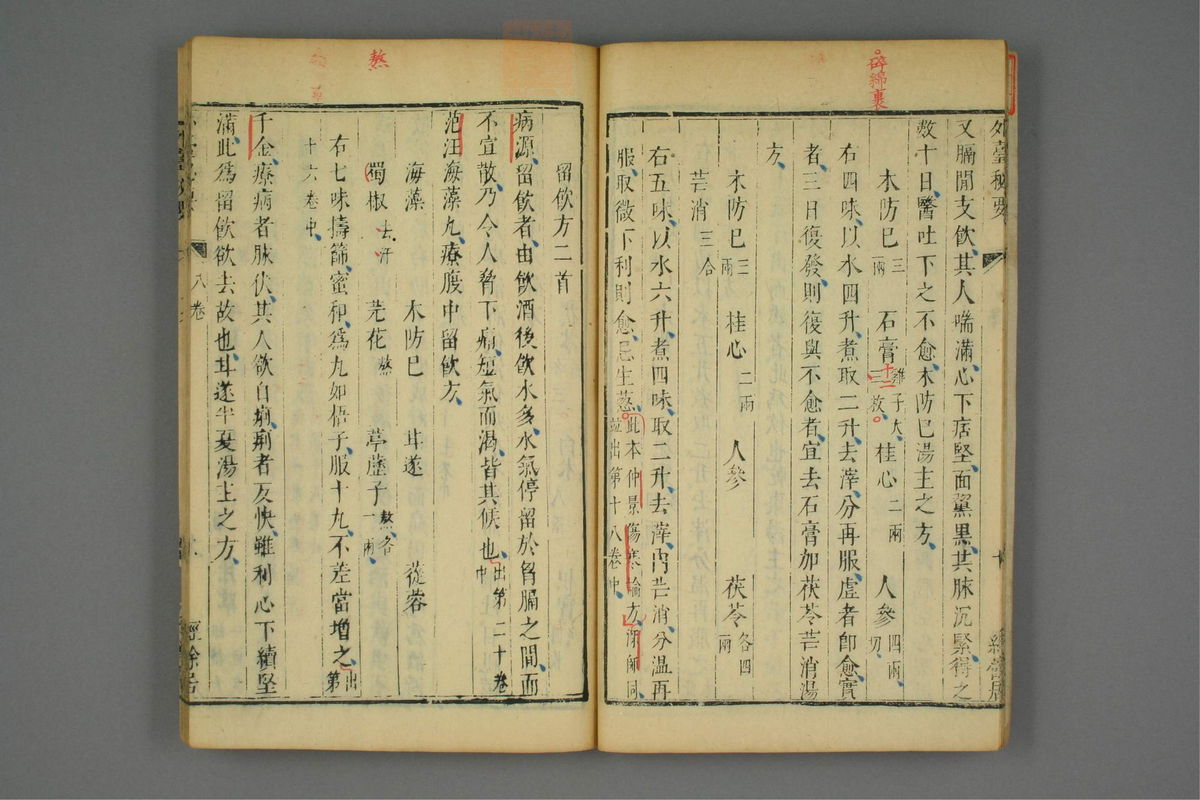 外臺秘要
又膈間支飲其人喘滿心下痞堅面黧黑其脉沉緊得之
數十日醫吐下之不愈木防巳湯主之方
木防巳三兩 石膏雞子大十二枚 桂心二兩 人參四兩切
右四味以水四升煮取二升去滓分再服虛者卽愈實
者三日復發則復與不愈者宜去石膏加茯苓芒消湯
方
木防巳三兩 桂心二兩 人參 茯苓各四兩
芒消三合
右五味以水六升煮四味取二升去滓內芒消分溫再
服取微下利則愈忌生葱此本仲景傷寒論方深師同
並出第十八卷中
碎綿裏
留飲方二首
病源留飲者由飲酒後飲水多水氣停留於胷膈之間而
不宣散乃令人脅下痛短氣而渴皆其候也出第二十卷中
范汪海藻丸療腹中留飲方
海藻 木防巳 甘遂 蓯蓉
蜀椒去汗 芫花熬 葶藶子熬各一兩
右七味擣篩蜜和爲丸如梧子服十丸不差當增之出第
十六卷中
千金療病者脉伏其人欲自痢痢者反快雖利心下續堅
滿此爲留飲欲去故也甘遂半夏湯主之方
熬
八卷
經餘居